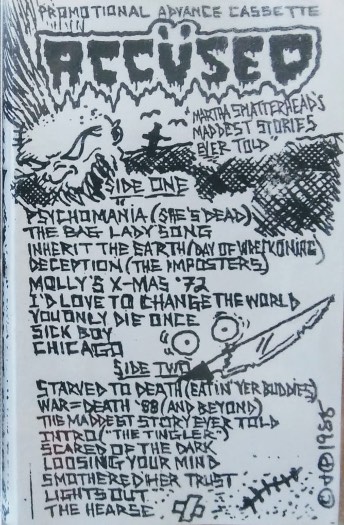 PROMOTIONAL ADVANCE CASSETTE
ACCÜSED
"MARTHA SPLATTERHEAD'S
MADDEST STORIES
EVER TOLD"
SIDE ONE
PSYCHOMANIA (SHE'S DEAD)
THE BAG LADY SONG
INHERIT THE EARTH (DAY OF WRECKONING)
DECEPTION (THE IMPOSTERS)
MOLLY'S X-MAS '72
I'D LOVE TO CHANGE THE WORLD
YOU ONLY DIE ONCE
SICK BOY
CHICAGO
SIDE TWO
STARVED TO DEATH (EATIN' YER BUDDIES)
WAR=DEATH '88 (AND BEYOND)
THE MADDEST STORY EVER TOLD
INTRO ("THE TINGLER")
SCARED OF THE DARK
LOOSING YOUR MIND
SMOTHERED HER TRUST
LIGHTS OUT
THE HEARSE
1988